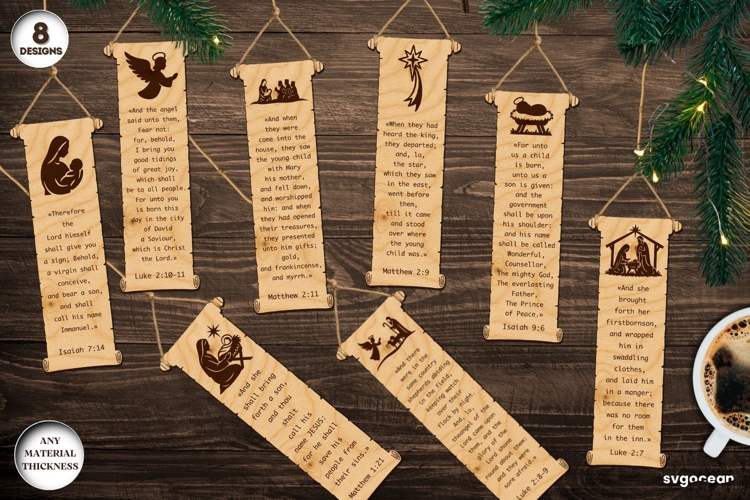 8
DESIGNS
«Therefore
the
Lord himself
shall give you
a sign; Behold,
a virgin shall
conceive,
and bear a son,
and shall
call his name
Immanuel.»
Isaiah 7:14
«And the angel
said unto them,
Fear not:
for, behold,
I bring you
good tidings
of great joy,
which shall
be to all people.
For unto you
is born this
day in the city
of David
a Saviour,
which is Christ
the Lord.»
Luke 2:10-11
«And when
they were
come into the
house, they saw
the young child
with Mary
his mother,
and fell down,
and worshipped
him: and when
they had opened
their treasures,
they presented
unto him gifts;
gold,
and frankincense,
and myrrh.»
Matthew 2:11
«When they had
heard the king,
they departed;
and, lo,
the star,
which they saw
in the east,
went before
them,
till it came
and stood
over where
the young
child was.»
Matthew 2:9
«For unto
us a child
is born,
unto us a
son is given:
and the
government
shall be upon
his shoulder:
and his name
shall be called
Wonderful,
Counsellor,
The mighty God,
The everlasting
Father,
The Prince
of Peace.»
Isaiah 9:6
«And she
brought
forth her
firstbornson,
and wrapped
him in
swaddling
clothes,
and laid him
in a manger;
because there
was no room
for them
in the inn.»
Luke 2:7
«And she
shall bring
forth a son,
and thou
shalt
call his
name JESUS:
for he shall
save his
people from
their sins.»
Matthew 1:21
«And there
were in the
same country
shepherds abiding
in the field,
keeping watch
over their
flock by night.
And, lo,
the angel of the
Lord came upon
them, and the
glory of the
Lord shone
round about them:
and they were
sore afraid.»
Luke 2:8-9
ANY
MATERIAL
THICKNESS
svgocean